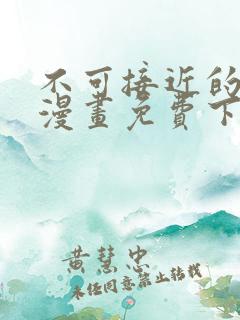 不可接近的
漫畫免費下
黃慧忠
未任同意禁止转载